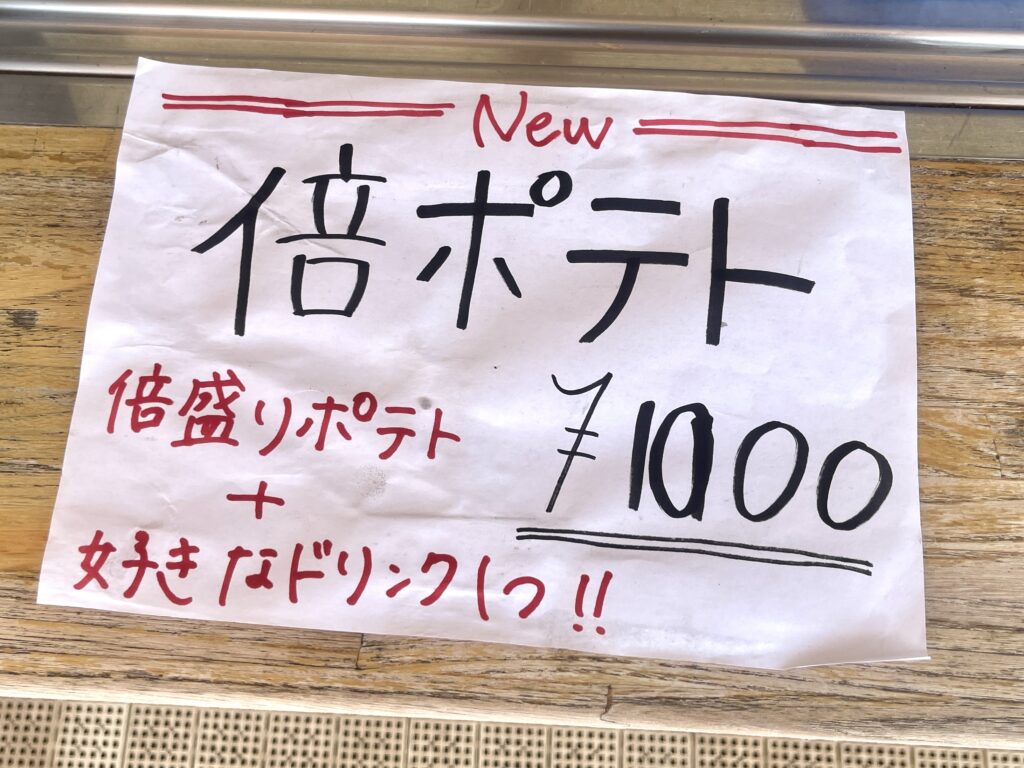 New
倍ポテト
倍盛りポテト
¥1000
+
好きなドリンク1つ!!